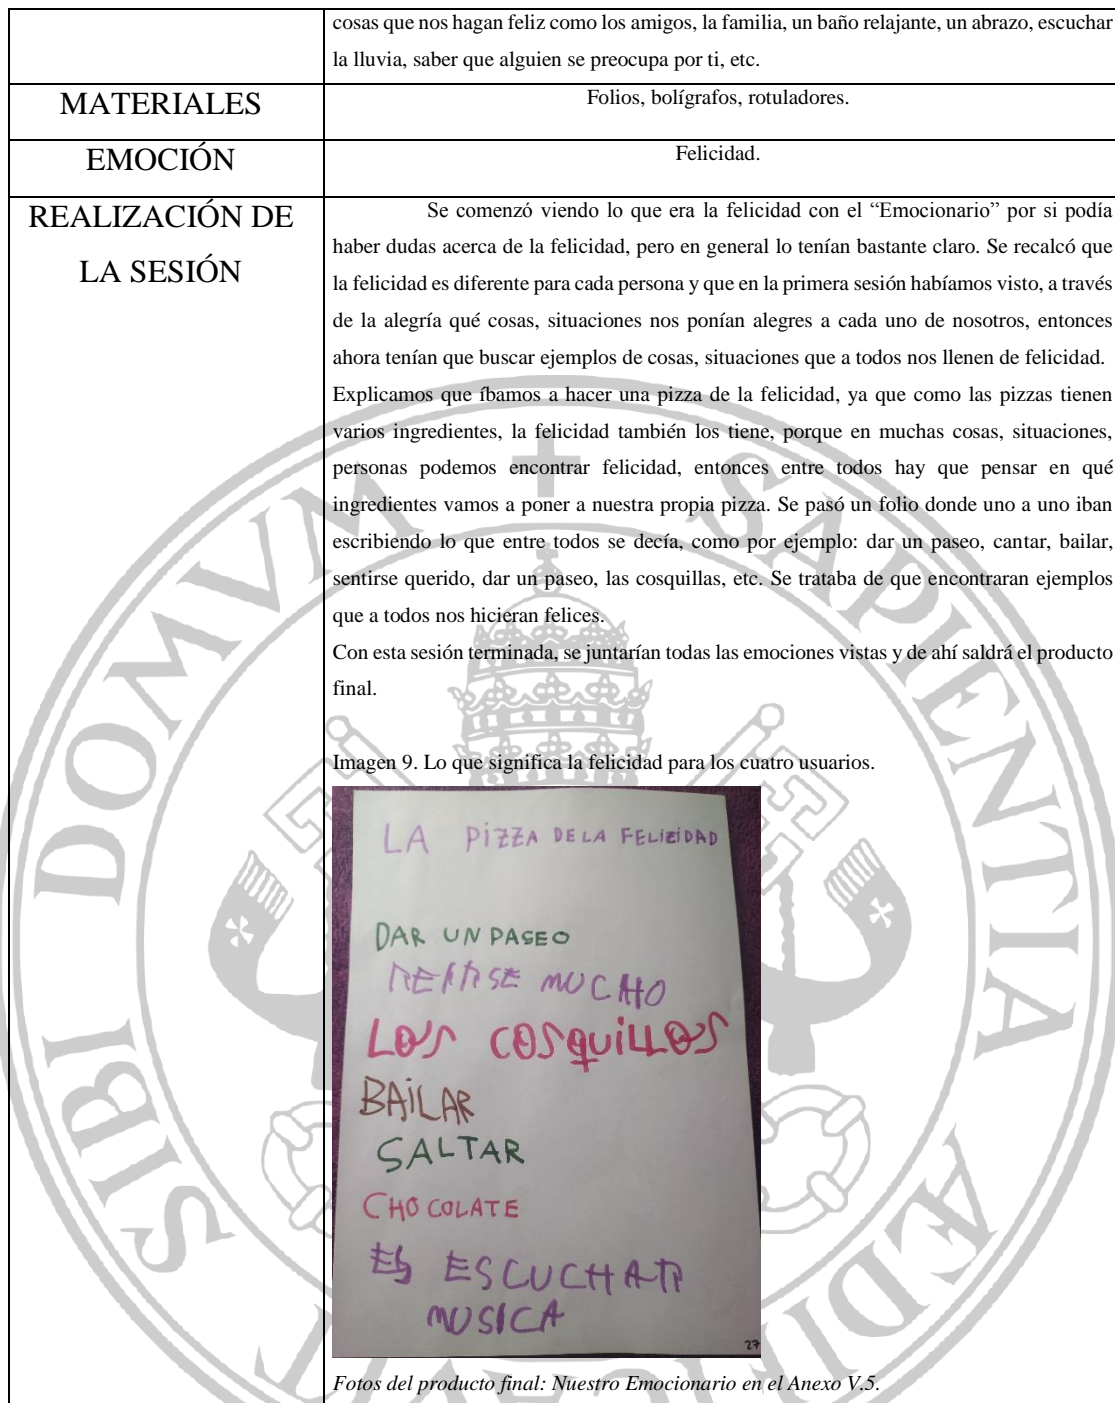 cosas que nos hagan feliz como los amigos, la familia, un baño relajante, un abrazo, escuchar
la lluvia, saber que alguien se preocupa por ti, etc.
MATERIALES
Folios, bolígrafos, rotuladores.
EMOCIÓN
Felicidad.
REALIZACIÓN DE
LA SESIÓN
Se comenzó viendo lo que era la felicidad con el “Emocionario” por si podía
haber dudas acerca de la felicidad, pero en general lo tenían bastante claro. Se recalcó que
la felicidad es diferente para cada persona y que en la primera sesión habíamos visto, a través
de la alegría qué cosas, situaciones nos ponían alegres a cada uno de nosotros, entonces
ahora tenían que buscar ejemplos de cosas, situaciones que a todos nos llenen de felicidad.
Explicamos que íbamos a hacer una pizza de la felicidad, ya que como las pizzas tienen
varios ingredientes, la felicidad también los tiene, porque en muchas cosas, situaciones,
personas podemos encontrar felicidad, entonces entre todos hay que pensar en qué
ingredientes vamos a poner a nuestra propia pizza. Se pasó un folio donde uno a uno iban
escribiendo lo que entre todos se decía, como por ejemplo: dar un paseo, cantar, bailar,
sentirse querido, dar un paseo, las cosquillas, etc. Se trataba de que encontraran ejemplos
que a todos nos hicieran felices.
Con esta sesión terminada, se juntarían todas las emociones vistas y de ahí saldrá el producto
final.
Imagen 9. Lo que significa la felicidad para los cuatro usuarios.
LA PiZZA DE LA FELiZiDAD
DAR UN PASEO
REIRSE MUCHO
LOS COSQUiLLOS
BAiLAR
SALTAR
CHOCOLATE
ES ESCUCHAR
MUSICA
27
Fotos del producto final: Nuestro Emocionario en el Anexo V.5.
SIBI DOMVM SAPIENTIA ÆDIFICAT